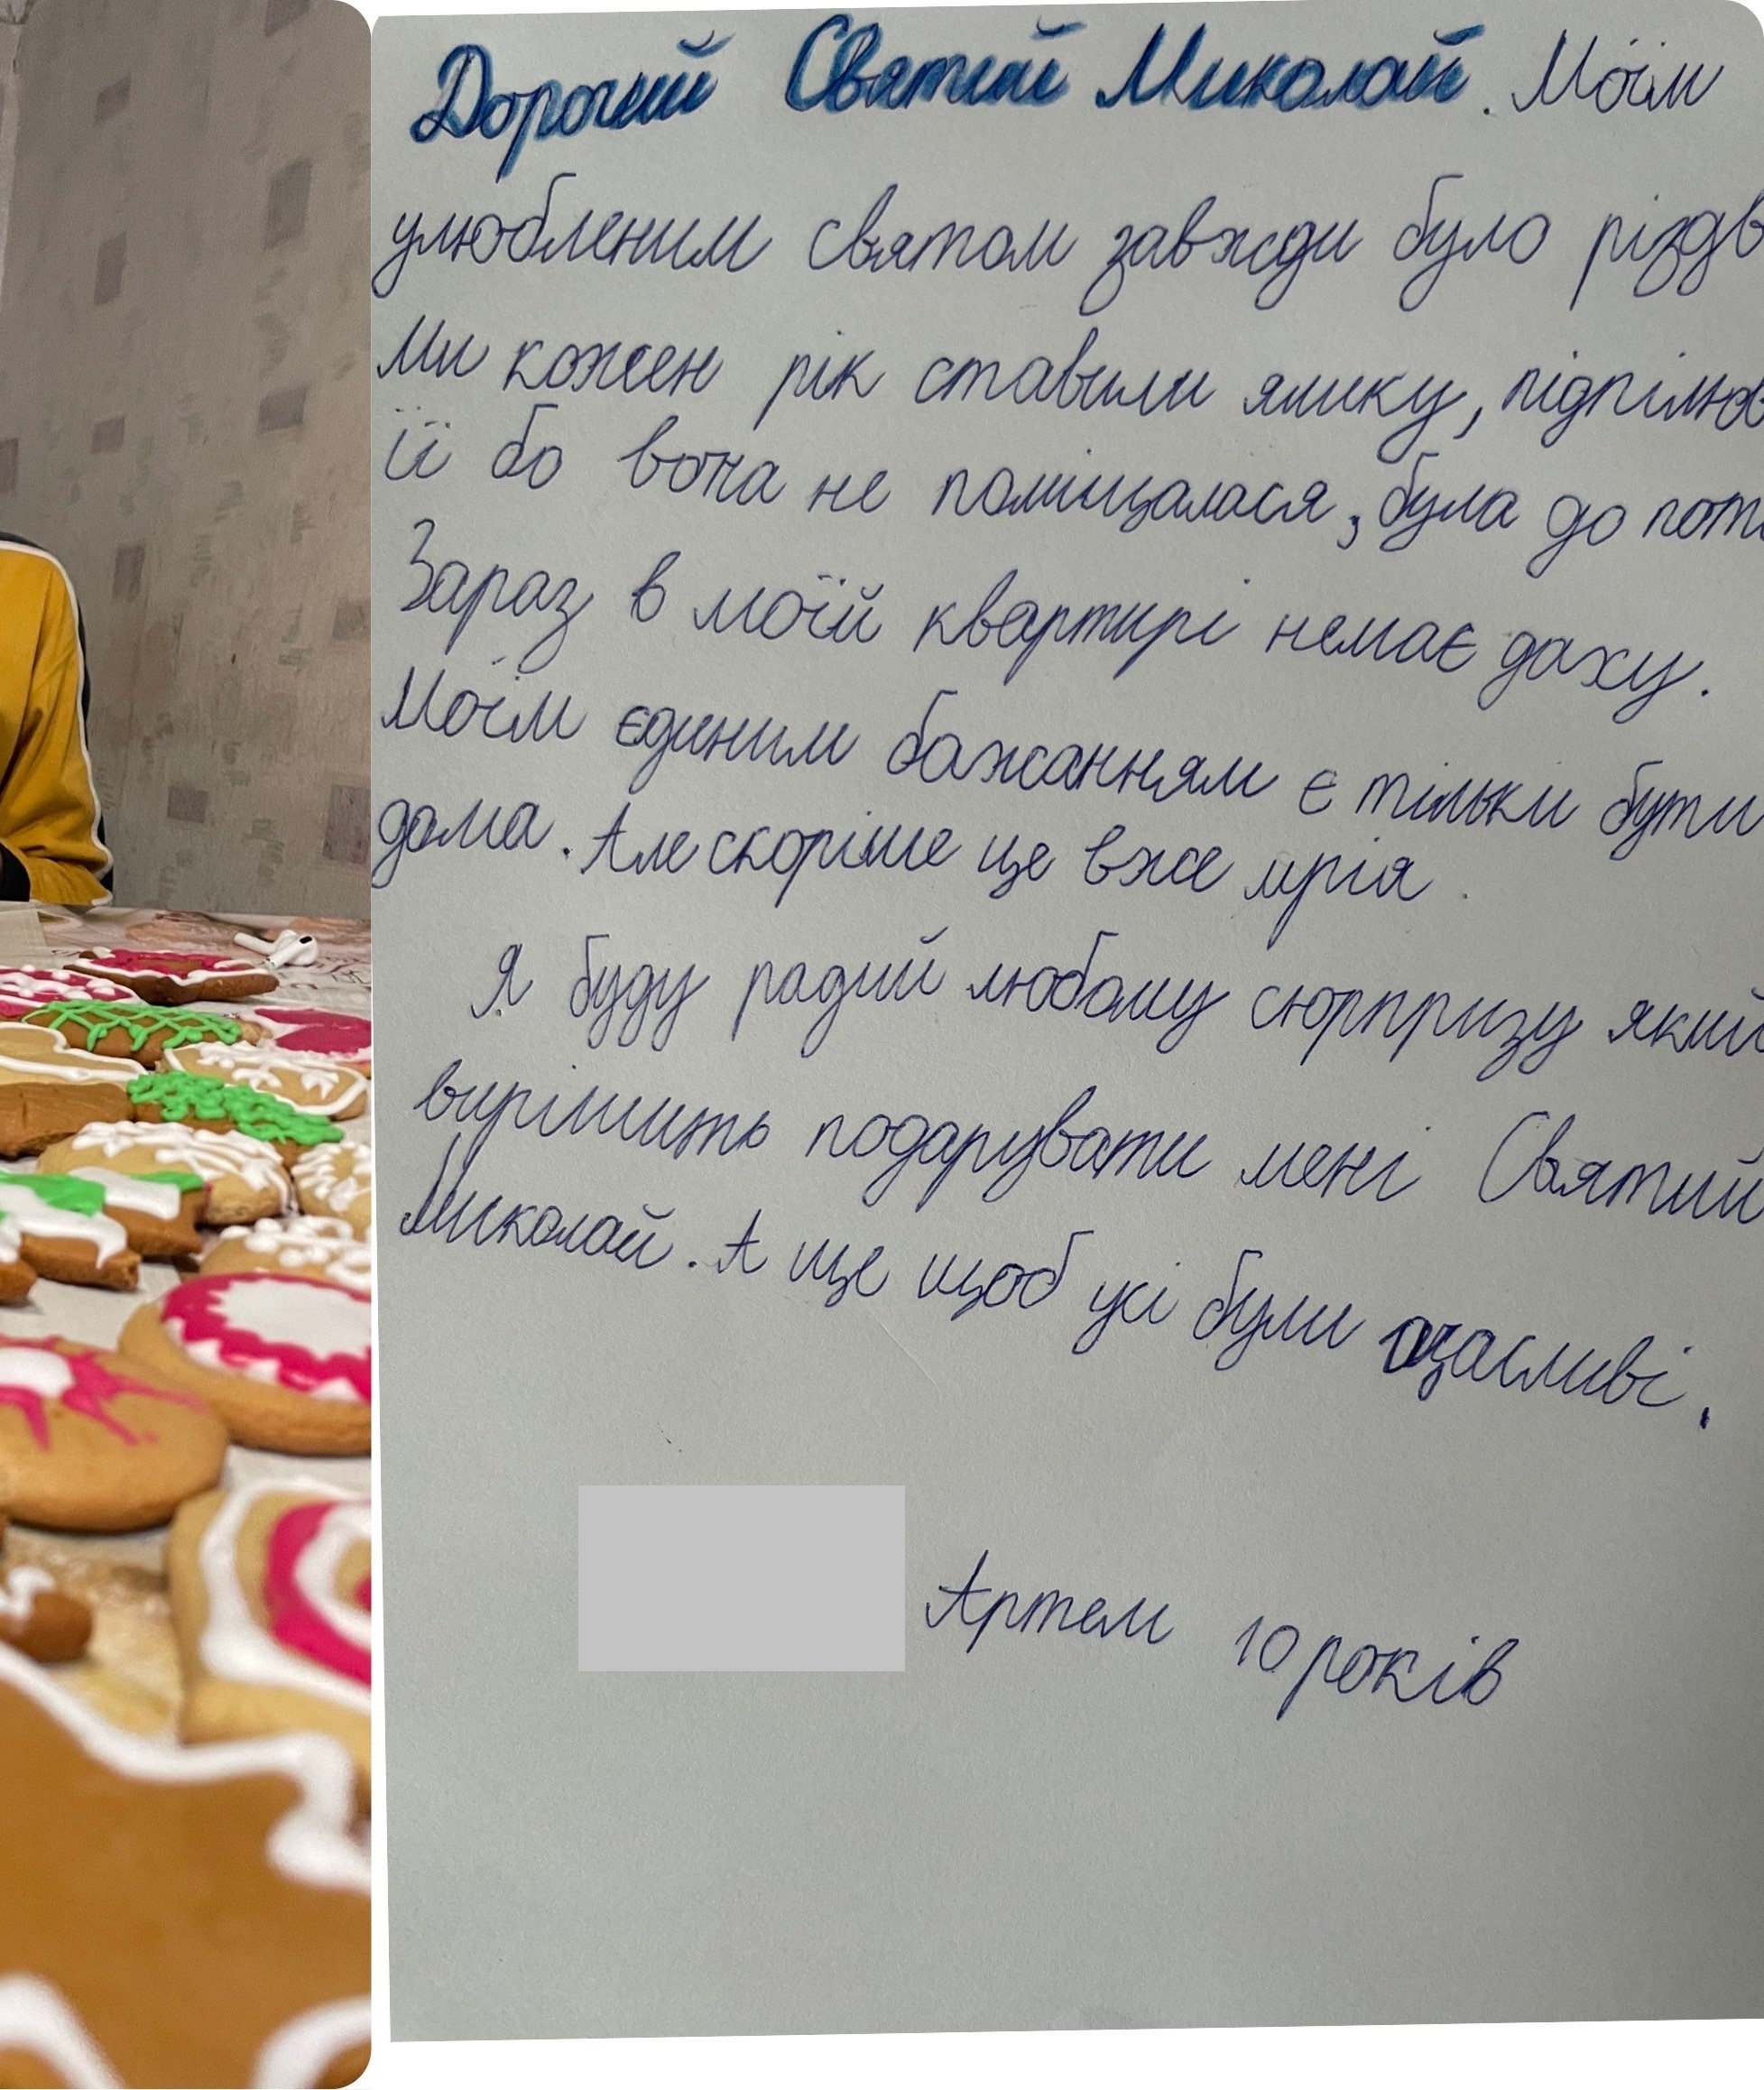 Дорогий Святий Миколай. Моїм
улюбленим святом завжди було різдв
Ми кожен рік ставили ялику, підпілюв
її бо вона не поміщалася, була до пот
Зараз в моїй квартирі немає даху.
Моїм єдиним бажанням є тільки бути
дома. Але скоріше це вже мрія.
Я буду радий любому сюрпризу який
вирішить подарувати мені Святий
Миколай. А ще щоб усі були щасливі.
Артем 10 років